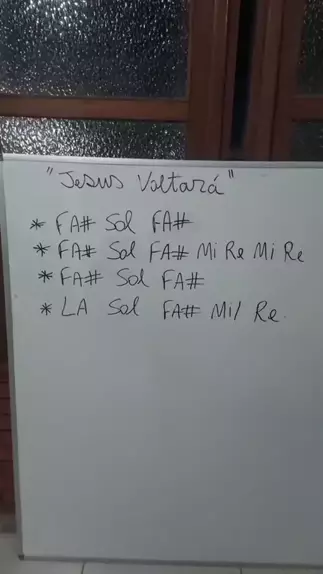 "Jesus Voltará"
* FA# Sol FA#
* FA# Sol FA# Mi Re Mi Re
* FA# Sol FA#
* LA Sol FA# Mi/ Re.